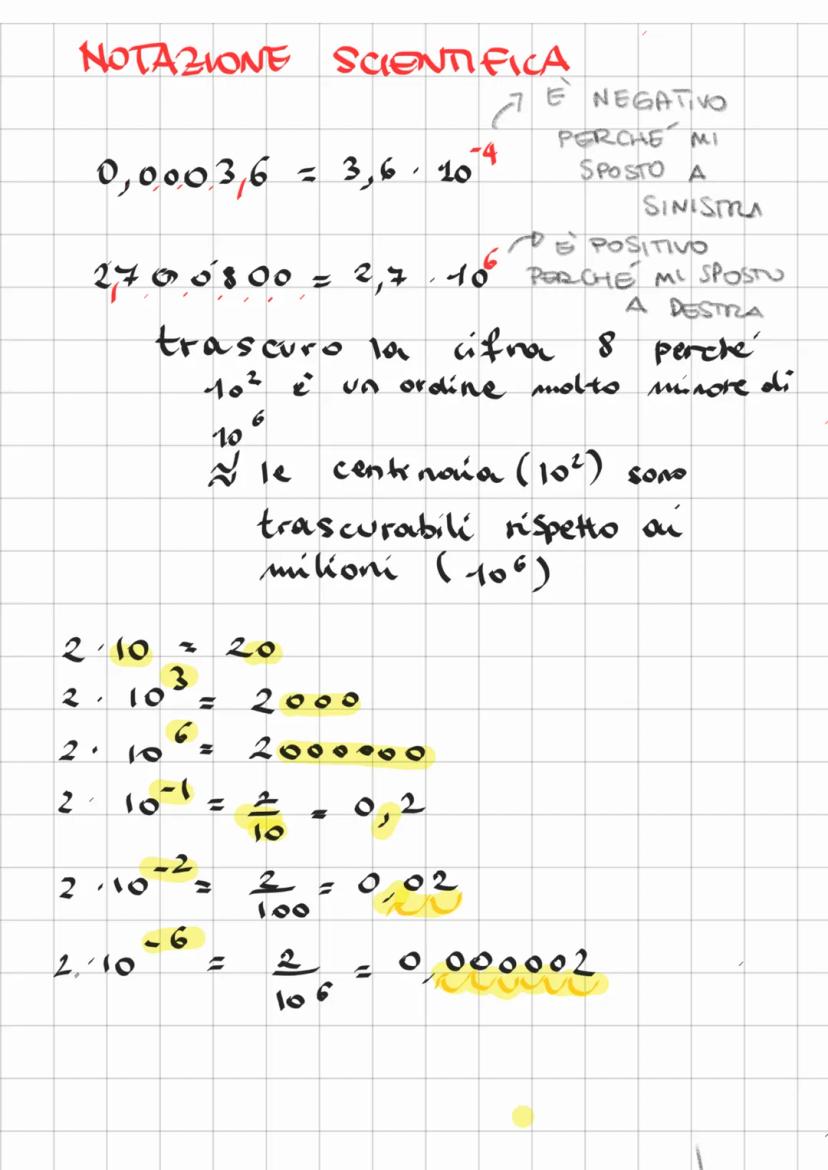 NOTAZIONE SCIENTIFICA
0,00036 = 3,6 · 10⁻⁴
È NEGATIVO
PERCHÉ MI
SPOSTO A
SINISTRA
2,7 00800 = 2,7 · 10⁶
È POSITIVO
PERCHÉ MI SPOSTO
A DESTRA
trascuro la cifra 8 perché
10² è un ordine molto minore di
10⁶
≈ le centinaia (10²) sono
trascurabili rispetto ai
milioni (10⁶)
2 · 10 = 20
2 · 10³ = 2000
2 · 10⁶ = 2000000
2 · 10⁻¹ = 2/10 = 0,2
2 · 10⁻² = 2/100 = 0,02
2 · 10⁻⁶ = 2/10⁶ = 0,000002